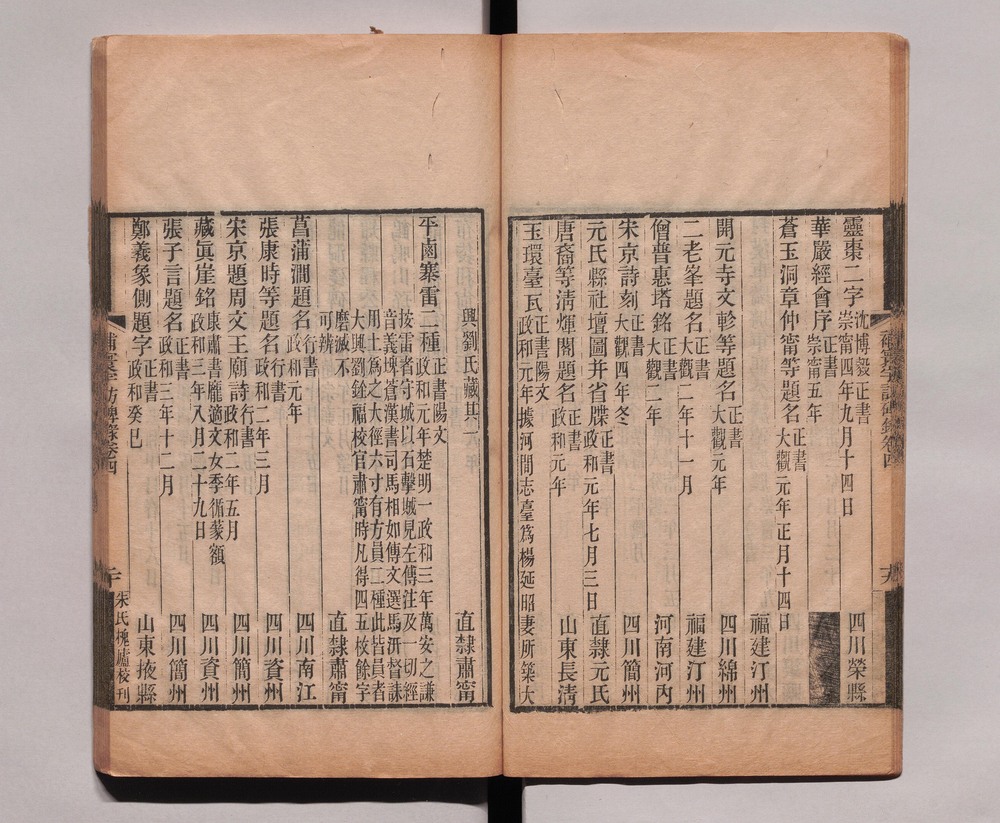 靈棗二字 沈博毅正書 崇甯四年九月十四日 四川榮縣
華嚴經會序 正書 崇甯五年
蒼玉洞章仲甯等題名 正書 大觀元年正月十四日 福建汀州
開元寺文軫等題名 正書 大觀元年 四川綿州
二老峯題名 正書 大觀二年十一月 福建汀州
僧普惠塔銘 正書 大觀二年 河南河內
宋京詩刻 正書 大觀四年冬 四川簡州
元氏縣社壇圖并省牒 政和元年七月三日 直隸元氏
唐裔等淸煇閣題名 正書 政和元年 山東長淸
玉環臺瓦 正書陽文 政和元年 據河間志臺爲楊延昭妻所築大
興劉氏藏其一 直隸肅甯
平鹵寨雷二種 正書陽文 政和元年楚明一政和三年萬安之謙
按雷者守城以石擊賊見左傳注及一切經
音義㙩蒼漢書司馬相如傳文選馬汧督誄
用土爲之大徑六寸有方員二種此皆員者
大興劉銓福校官肅甯時凡得四五枚餘字
磨滅不可辨 直隸肅甯
菖蒲澗題名 行書 政和元年 四川南江
張康時等題名 行書 政和二年三月 四川資州
宋京題周文王廟詩 行書 政和二年五月 四川簡州
藏眞崖銘 康肅書龐適文女季循篆額 政和三年八月二十九日 四川資州
張子言題名 正書 政和三年十二月 四川簡州
鄭義象側題字 正書 政和癸巳 山東掖縣
補寰宇訪碑錄卷四
朱氏槐廬校刊